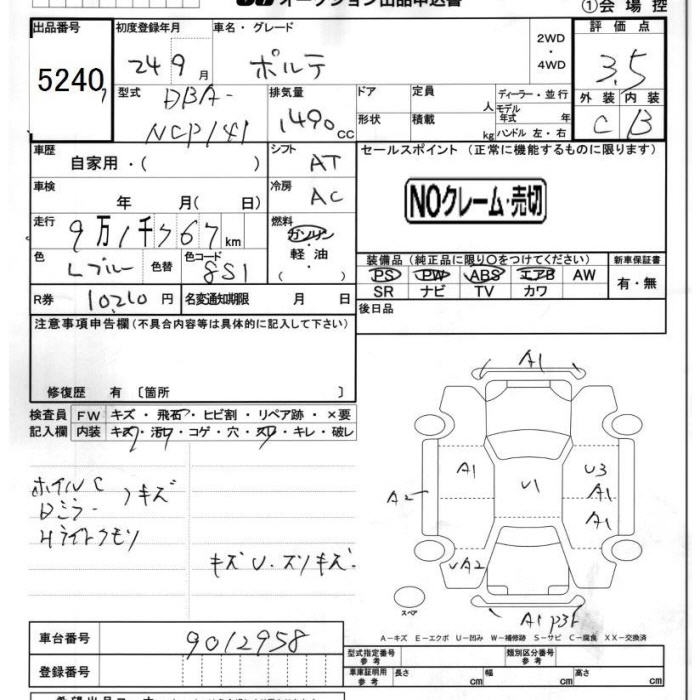 オークション出品申込書 ①会場控
出品番号 初度登録年月 車名・グレード 2WD・4WD 評価点
5240 24 9月 ポルテ 3.5
型式 DBA-NCP141 排気量 1490cc
ドア 定員 人 ディーラー・並行
形状 積載 kg モデル年式 年 ハンドル 左・右
外装 内装
C B
車歴 自家用・( ) シフト AT
セールスポイント (正常に機能するものに限ります)
車検 年 月( 日) 冷房 AC
NOクレーム・売切
走行 9万1千767km 燃料 ガソリン・軽油・( )
色 Lブルー 色替 色コード 8S1
装備品 (純正品に限り〇をつけてください) 新車保証書
PS PW ABS エアB AW 有・無
SR ナビ TV カワ
R券 10,210円 名変通知期限 月 日
後日品
注意事項申告欄(不具合内容等は具体的に記入して下さい)
修復歴 有 〔箇所 〕
検査員 FW キズ・飛石・ヒビ割・リペア跡・×要
記入欄 内装 キズ・汚レ・コゲ・穴・スレ・キレ・破レ
ホイルC
Dミラー キズ
Hライトクモリ
キズU.スリキズ
A1
A1 U3
A2 U1 A1
A1
UA2
スペア
A1
A-キズ E-エクボ U-凹み W-補修跡 S-サビ C-腐食 XX-交換済
車台番号 9012958
型式指定番号 参考 類別区分番号 参考
登録番号
車庫証明用 参考 長さ cm 幅 cm 高さ cm